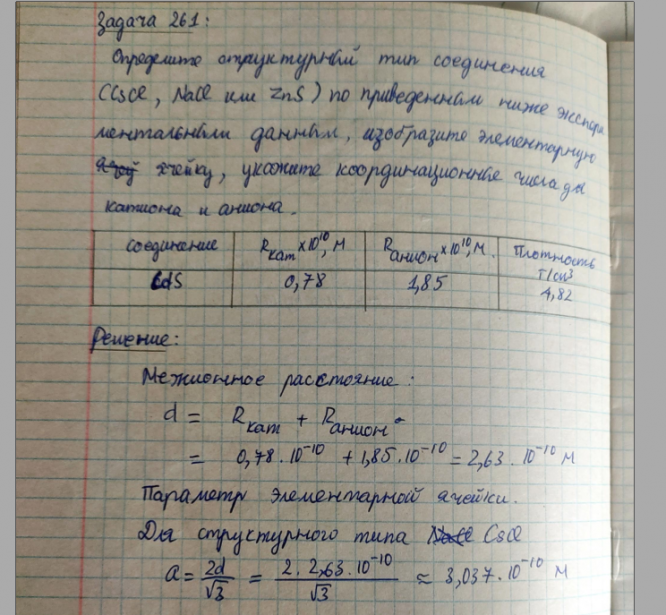 Задача 261:
Определите структурный тип соединения
(CsCl, NaCl или ZnS) по приведенным ниже экспери
ментальным данным, изобразите элементарную
ячейку, укажите координационные числа для
катиона и аниона.
соединение Rкат×10¹⁰, м Rанион×10¹⁰, м. Плотность г/см³
CdS 0,78 1,85 4,82
Решение:
Межионное расстояние:
d = Rкат + Rанион
= 0,78·10⁻¹⁰ + 1,85·10⁻¹⁰ = 2,63·10⁻¹⁰ м
Параметр элементарной ячейки.
Для структурного типа CsCl
a = 2d/√3 = 2·2,63·10⁻¹⁰/√3 ≈ 3,037·10⁻¹⁰ м